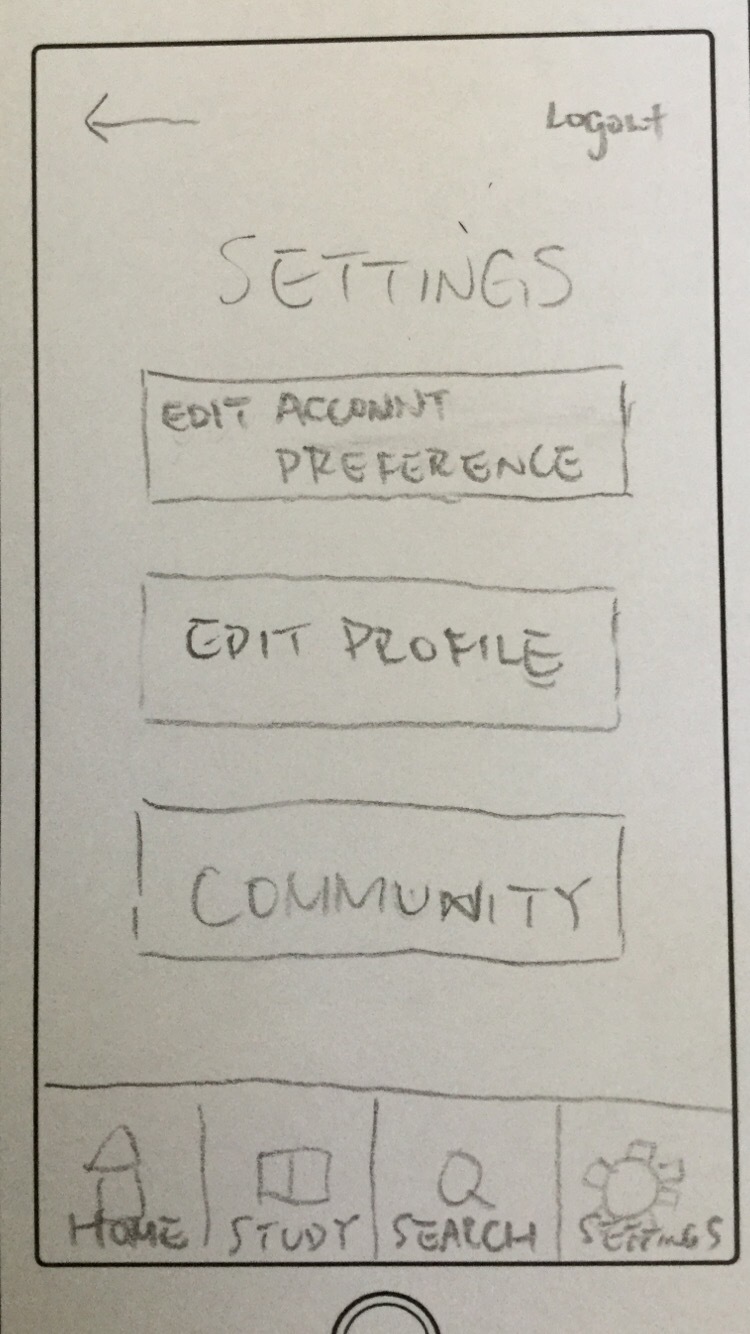 Logout
SETTINGS
EDIT ACCOUNT
PREFERENCE
EDIT PROFILE
COMMUNITY
HOME
STUDY
SEARCH
SETTINGS